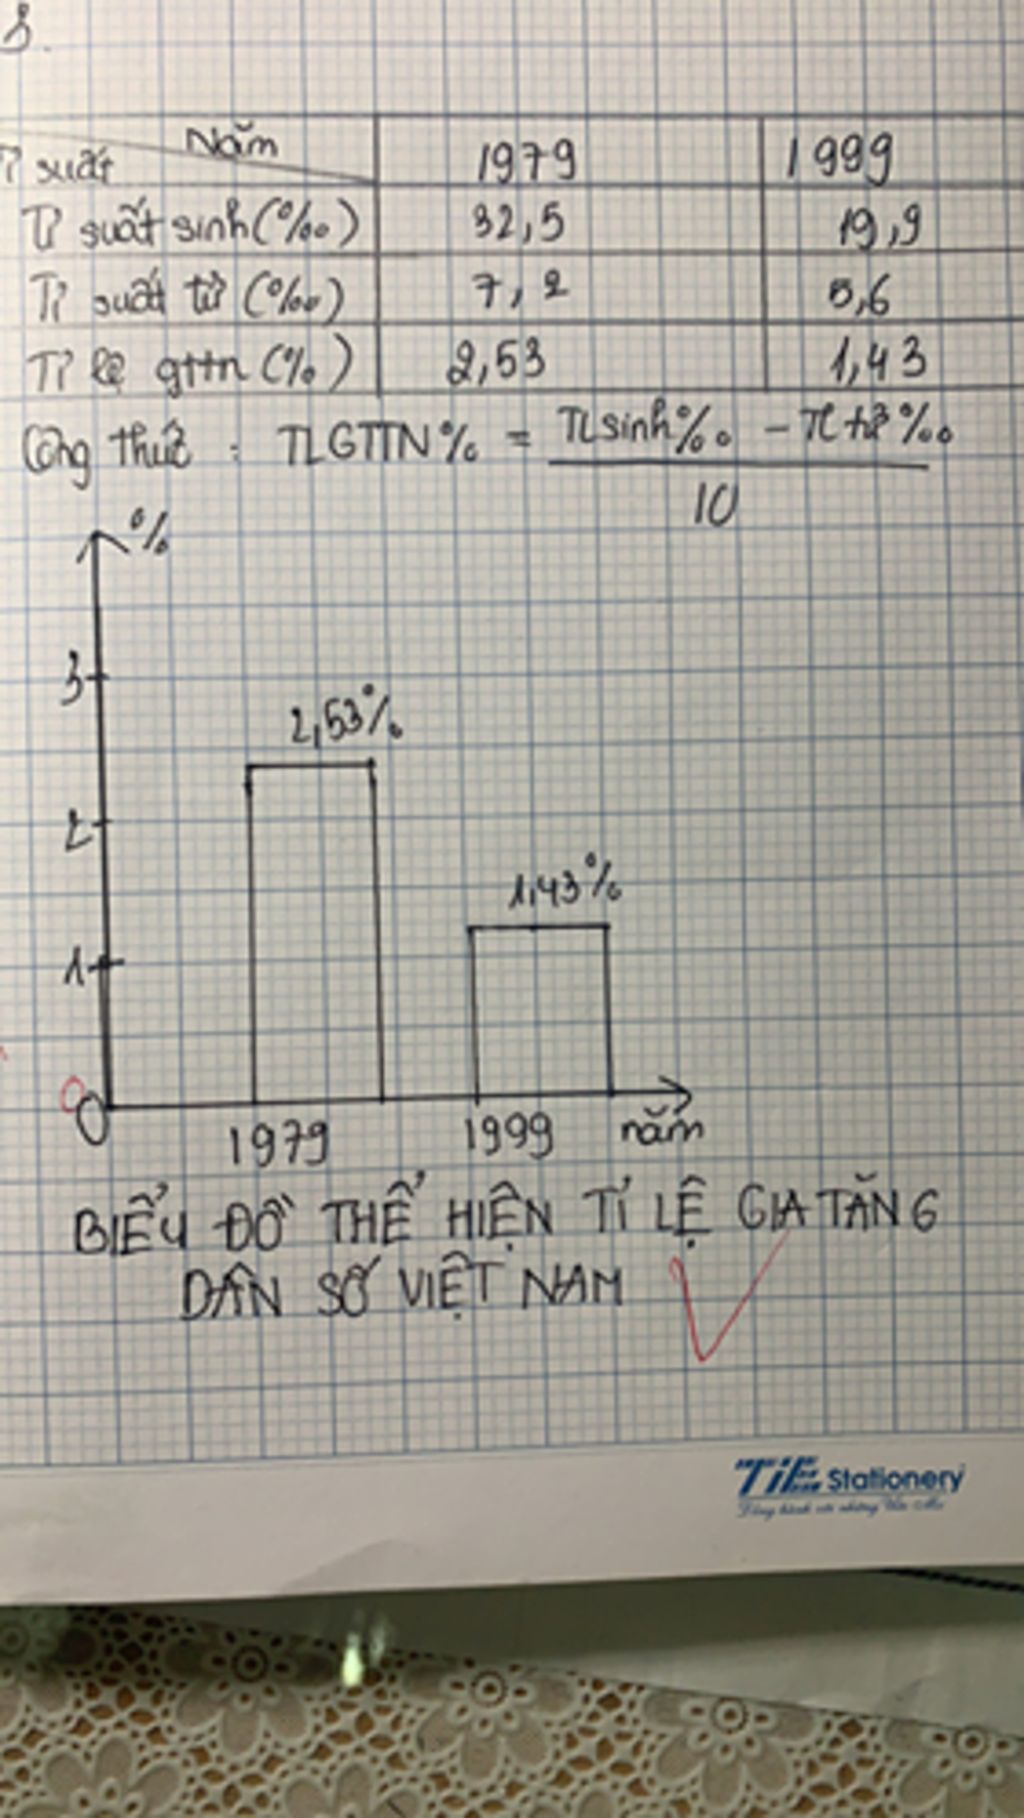 3.
Năm
Tỉ suất
1979
1999
Tỉ suất sinh (‰)
32,5
19,9
Tỉ suất tử (‰)
7,2
5,6
Tỉ lệ gttn (%)
2,53
1,43
Công thức : TLGTTN% = TLsinh‰ - TL tử‰
10
%
3
2,53%
2
1,43%
1
0
1979
1999
năm
BIỂU ĐỒ THỂ HIỆN TỈ LỆ GIA TĂNG
DÂN SỐ VIỆT NAM
TiE Stationery